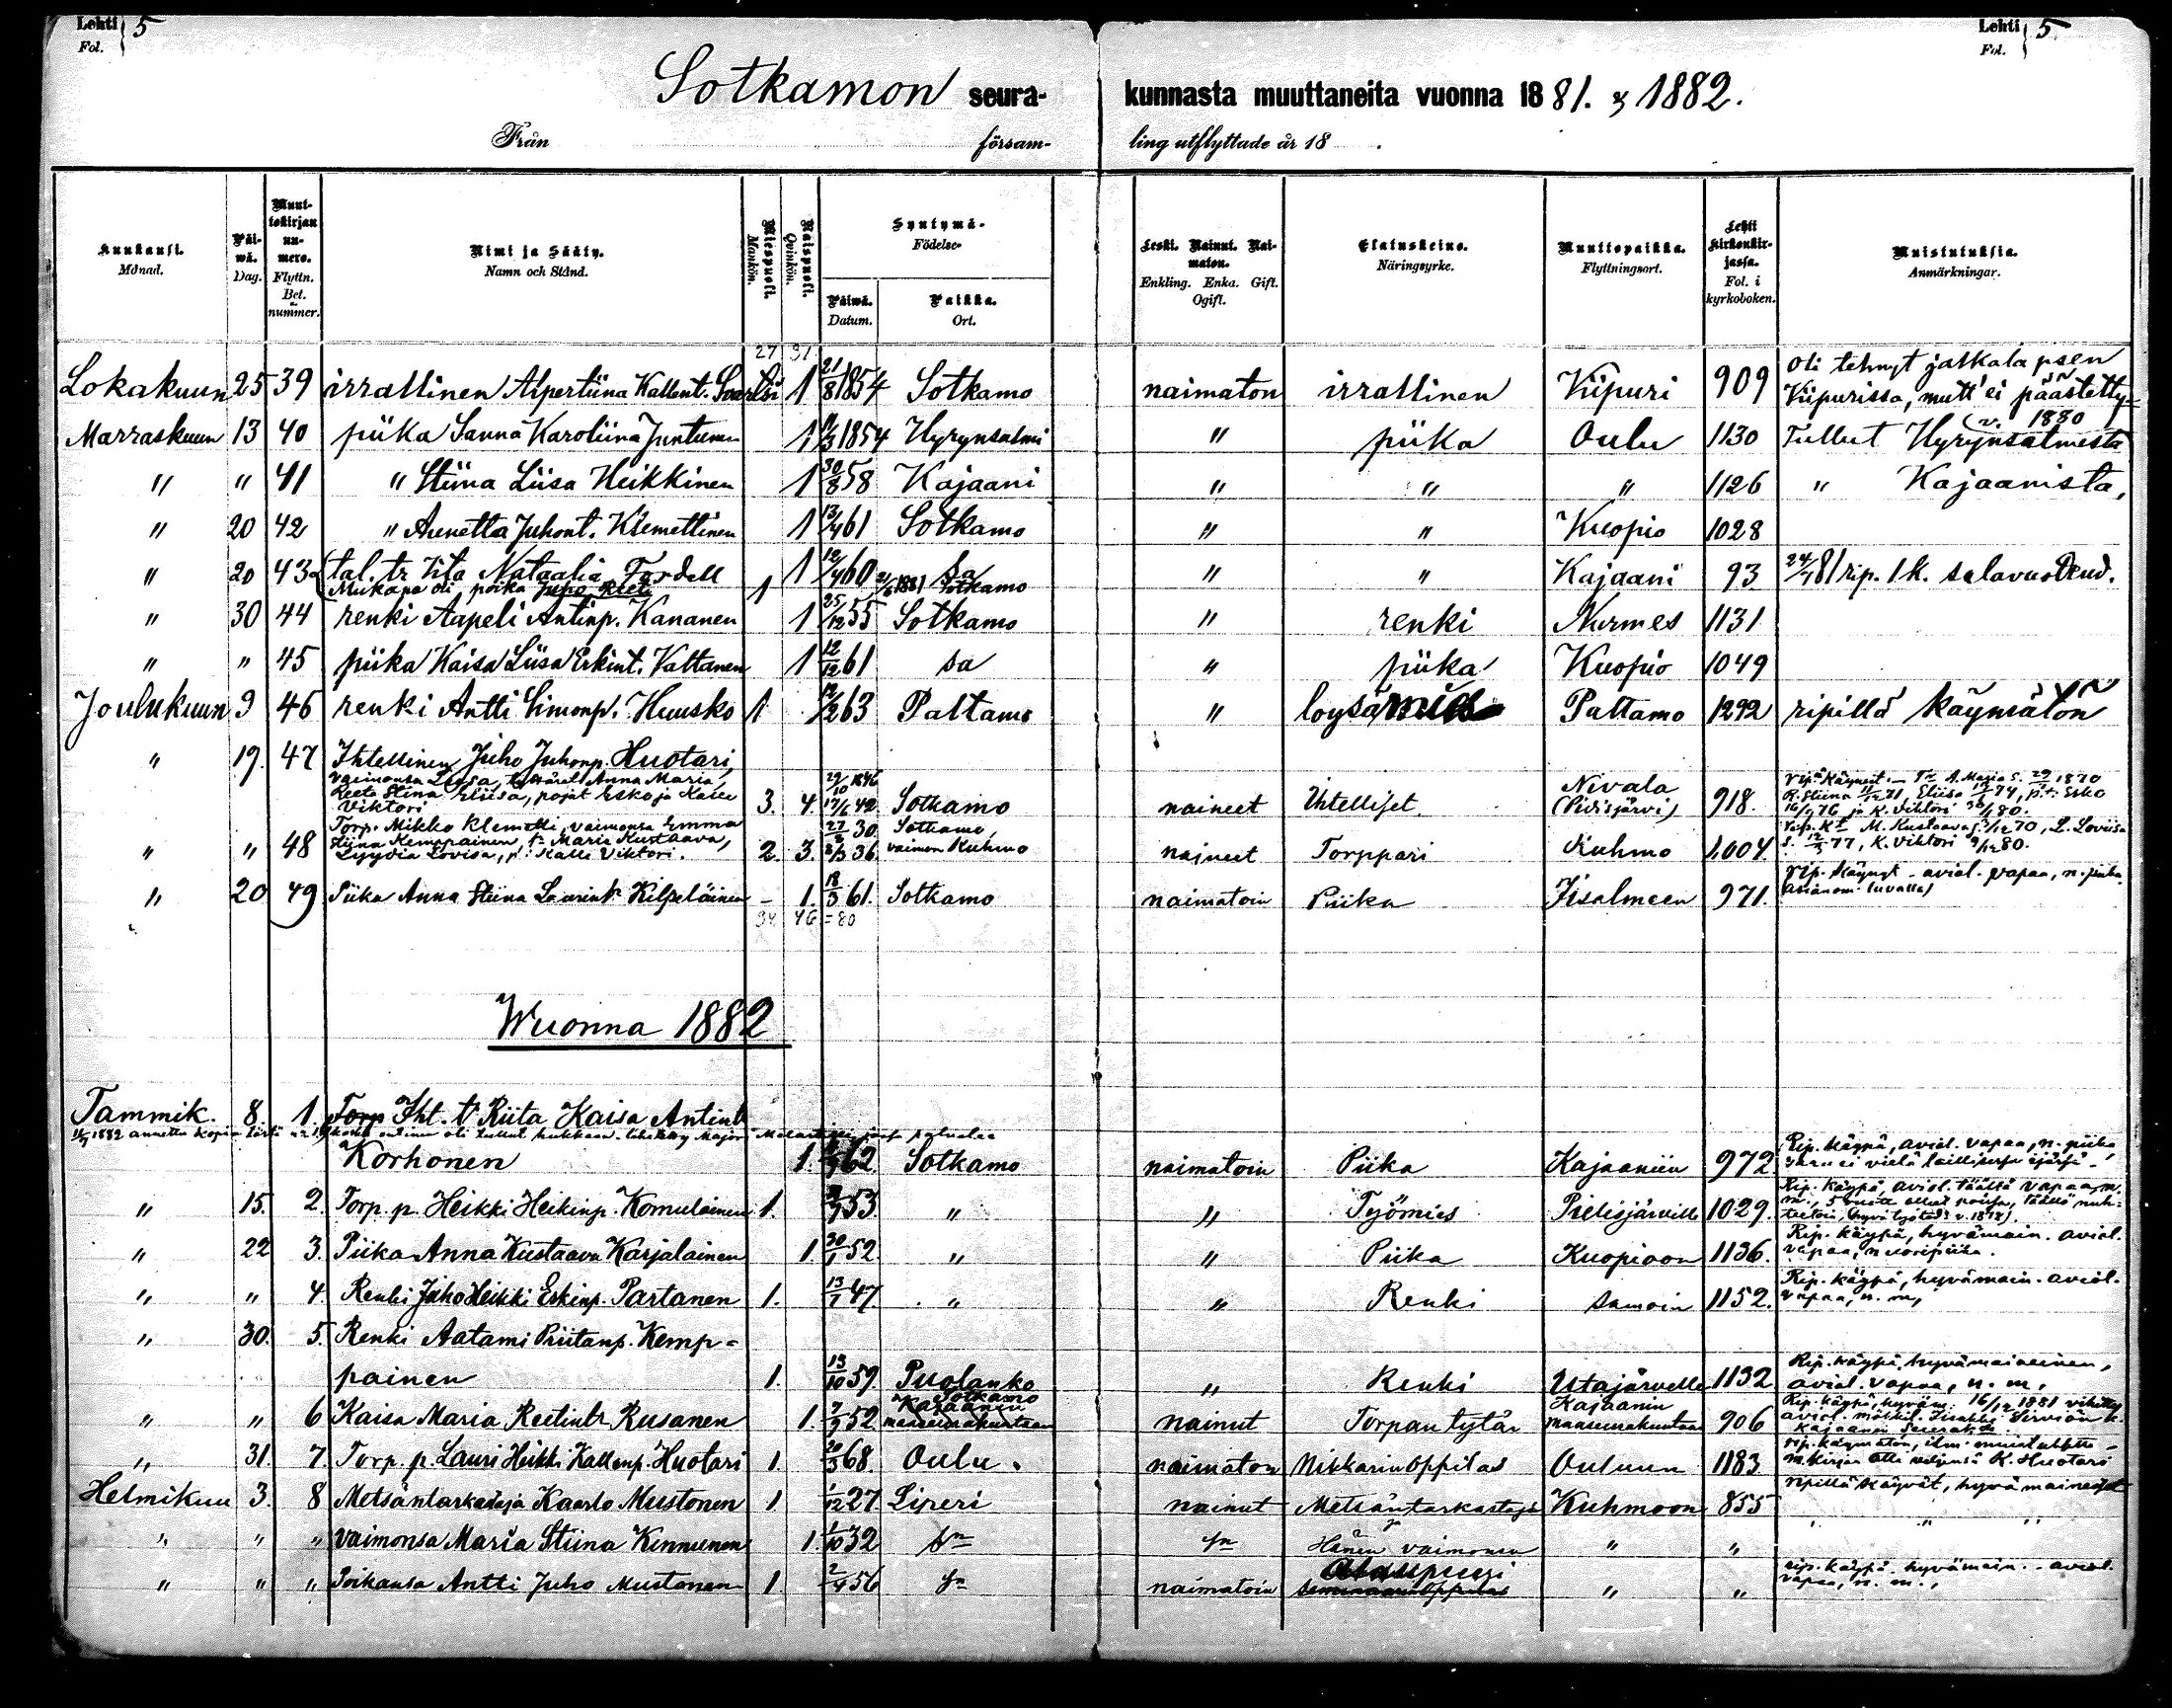 Lehti Fol. 5
Lehti Fol. 5
Sotkamon seura- kunnasta muuttaneita vuonna 1881. & 1882.
Från försam- ling utflyttade år 18 .
Kuukausi. Månad.
Päi-wä. Dag.
Muut-tokirjan nu-mero. Flyttn. Bet. nummer.
Nimi ja Sääty. Namn och Stånd.
Miespuoli. Mankön.
Naispuoli. Qvinkön.
Syntymä- Födelse-
Päiwä. Datum.
Paikka. Ort.
Leski. Nainut. Nai-maton. Enkling. Enka. Gift. Ogift.
Elatuskeino. Näringsyrke.
Muuttopaikka. Flyttningsort.
Lehti kirkonkir-jassa. Fol. i kyrkoboken.
Muistutuksia. Anmärkningar.
27 31
Lokakuun 25 39 irrallinen Alpertiina Kallent. 1 21/8 1854 Sotkamo naimaton irrallinen Viipuri 909 oli tehnyt jalkalapsen Viipurissa, mutt' ei päästetty
Marraskuun 13 40 piika Sanna Karoliina Juntunen 1 1854 Hyrynsalmi " piika Oulu 1130 Tullut Hyrynsalmesta v. 1880
" " 41 " Stiina Liisa Heikkinen 1 30/8 58 Kajaani " " " 1126 " Kajaanista,
" 20 42 " Annetta Juhont. Klemettinen 1 13/4 61 Sotkamo " " Kuopio 1028
" 20 43 tal. tr Iita Nataalia Fordell 1 12/4 60 sa " " Kajaani 93 24/7 81 rip. 1k.
Mukana oli poika Juho Reeti 1 1881 Sotkamo
" 30 44 renki Aapeli Antinp. Kananen 1 25/12 55 Sotkamo " renki Nurmes 1131
" " 45 piika Kaisa Liisa Erkint. Valtanen 1 12/12 61 sa " piika Kuopio 1049
Joulukuun 9 46 renki Antti Simonp. Huusko 1 12/2 63 Paltamo " loysä mies Paltamo 1292 ripillä käymätön
" 19. 47 Ihtellinen Juho Juhonp. Huotari,
vaimonsa Liisa, tyttäret Anna Maria, 29/10 1846
Reeta Stina Eliisa, pojat Esko ja Kalle
Viktori 3. 4. 17/6 42 Sotkamo naineet Ihtelliset Nivala (Pidisjärvi) 918. rip. käyneet. – Tr A. Maria s. 29/ 1870 R. Stiina 71, Eliisa 74, p.t. Esko 76 ja K. Viktori 80.
" " 48 Torp. Mikko Klemetti, vaimonsa Emma
Stiina Kemppainen, tr Maria Kustaava,
Lyydia Lovisa, p. Kalli Viktori. 2. 3. 30. 36. Sotkamo, vaimon Kuhmo naineet Torppari Kuhmo 1,004 M. Kustaava s. 70, L. Loviisa s. 77, K. Viktori 9/12 80.
" 20 49 Piika Anna Stiina Laurint. Kilpeläinen - 1. 18/3 61. Sotkamo naimatoin Piika Iisalmeen 971. rip. käynyt - aviol. vapaa, n. piika
34 46 = 80
Wuonna 1882
Tammik. 8 1. Torp Iht. tr Riita Kaisa Antint
Korhonen 1. 62 Sotkamo naimatoin Piika Kajaaniin 972 Rip. käypä, aviol. vapaa, n. piika
" 15. 2. Torp. p. Heikki Heikinp. Komulainen 1. 53. " " Työmies Pielisjärville 1029. Rip. käypä, aviol. täältä vapaa, n. m.
" 22 3. Piika Anna Kustaava Karjalainen 1. 30/1 52 " " Piika Kuopioon 1136. Rip. käypä, hyvämain. aviol. vapaa, nuoripiika.
" " 4. Renki Juho Heikki Eskinp. Partanen 1. 13/7 47. " " Renki samoin 1152. Rip. käypä, hyvämain. aviol. vapaa, n. m,
" 30. 5. Renki Aatami Priitanp. Kemp-
painen 1. 13/10 59. Puolanko " Renki Utajärvelle 1132 Rip. käypä, hyvämaineinen, aviol. vapaa, n. m,
" " 6 Kaisa Maria Reetintr Rusanen 1. 7/9 52 Sotkamo Kajaanin maaseurakuntaan nainut Torpan tytär Kajaanin maaseurakuntaan 906 Rip. käypä, hyväm. 16/12 1881 vihitty
" 31. 7. Torp. p. Lauri Heikki Kallenp. Huotari 1. 20/3 68. Oulu. naimaton Nikkarin Oppilas Ouluun 1183 rip. käymätön,
Helmikuu 3. 8 Metsäntarkastaja Kaarlo Mustonen 1 1/12 27. Liperi nainut Metsäntarkastaja Kuhmoon 855 ripillä käyvät, hyvämaineiset
" " " Vaimonsa Maria Stiina Kinnunen 1. 1/10 32 sn sn Hänen vaimonsa " " " " "
" " " Poikansa Antti Juho Mustonen 1. 2/4 56 sn naimatoin " " rip. käypä. hyvämain. - aviol. vapaa, n. m.,